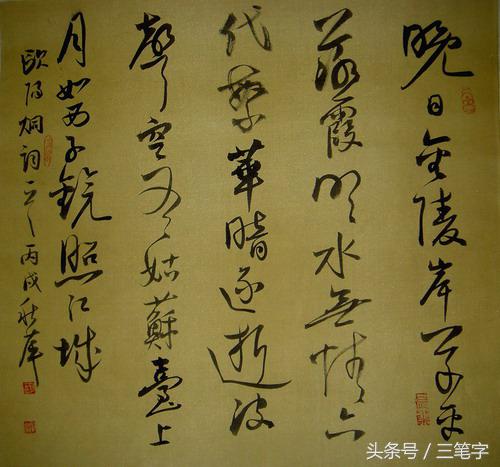 晚日金陵岸草平
落霞明水無情六
代繁華暗逐逝波
聲空有姑蘇臺上
月如西子鏡照江城
歐陽炯詞丙戌秋
头条号 / 三笔字